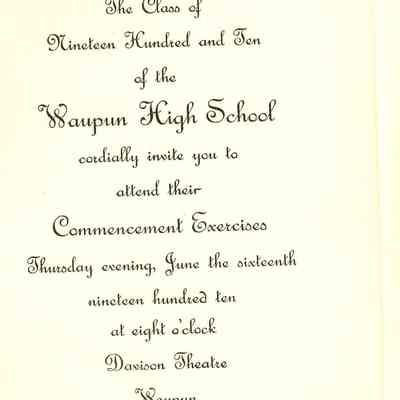 The Class of
Nineteen Hundred and Ten
of the
Waupun High School
cordially invite you to
attend their
Commencement Exercises
Thursday evening, June the sixteenth
nineteen hundred ten
at eight o'clock
Davison Theatre
Waupun